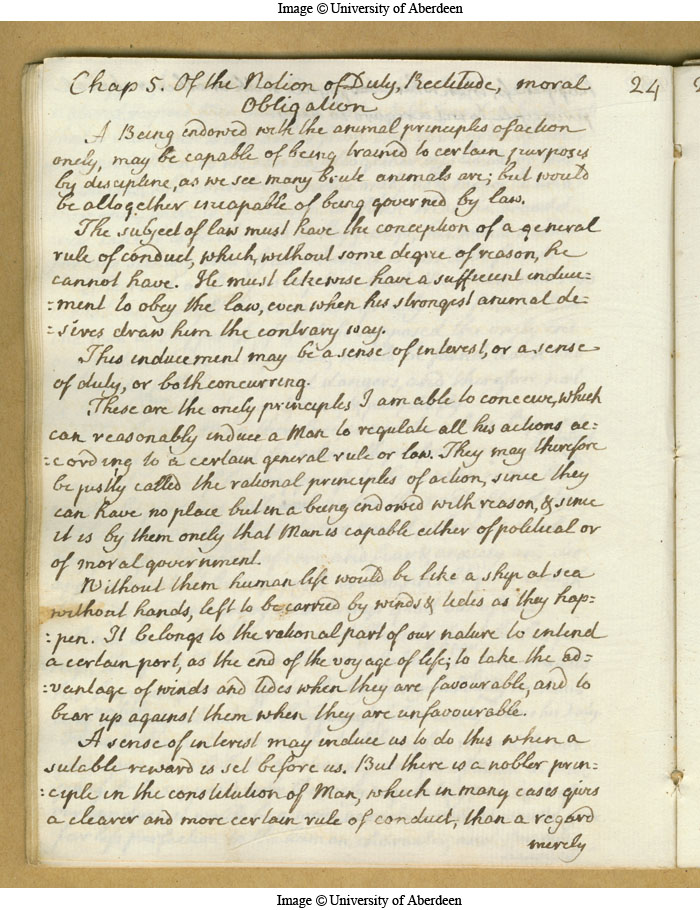 Image © University of Aberdeen
Chap 5. Of the Notion of Duty, Rectitude, moral
24
Obligation
A Being endowed with the animal principles of action
onely, may be capable of being trained to certain purposes
by discipline, as we see many brute animals are; but would
be altogether incapable of being governed by law.
The subject of law must have the conception of a general
rule of conduct, which, without some degree of reason, he
cannot have. He must likewise have a sufficient induce=
=ment to obey the law, even when his strongest animal de=
=sires draw him the contrary way.
This inducement may be a sense of interest, or a sense
of duty, or both concurring.
These are the onely principles I am able to conceive, which
can reasonably induce a Man to regulate all his actions ac=
=cording to a certain general rule or law. They may therefore
be justly called the rational principles of action, since they
can have no place but in a being endowed with reason, & since
it is by them onely that Man is capable either of political or
of moral government.
Without them human life would be like a ship at sea
without hands, left to be carried by winds & tides as they hap=
=pen. It belongs to the rational part of our nature to intend
a certain port, as the end of the voyage of life; to take the ad=
=vantage of winds and tides when they are favourable, and to
bear up against them when they are unfavourable.
A sense of interest may induce us to do this when a
sutable reward is set before us. But there is a nobler prin=
=ciple in the constitution of Man, which in many cases gives
a clearer and more certain rule of conduct, than a regard
merely
Image © University of Aberdeen